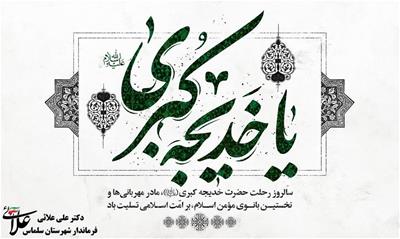 یا خدیجه کبری
علیها السلام
سالروز رحلت حضرت خدیجه کبری(س)، مادر مهربانی‌ها و
نخستین بانوی مؤمن اسلام، بر امت اسلامی تسلیت باد
دکتر علی علائی
فرماندار شهرستان سلماس